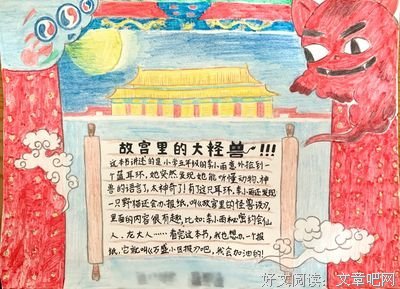 故宫里的大怪兽~!!!
这本书讲述的是小学五年级的李小雨意外捡到
一个蓝耳环,她突然发现她能听懂动物、神
兽的语言了,太神奇了!有了这只耳环,李小雨还发现
一只野猫还会办报纸,叫《故宫里的怪兽谈》,
里面的内容很有趣,比如:李小雨和密约会仙
人、龙大人……看完这本书,我也想办一个报
纸,它就叫《万盛小区报》吧,我会加油的!
好文阅读:文章吧网